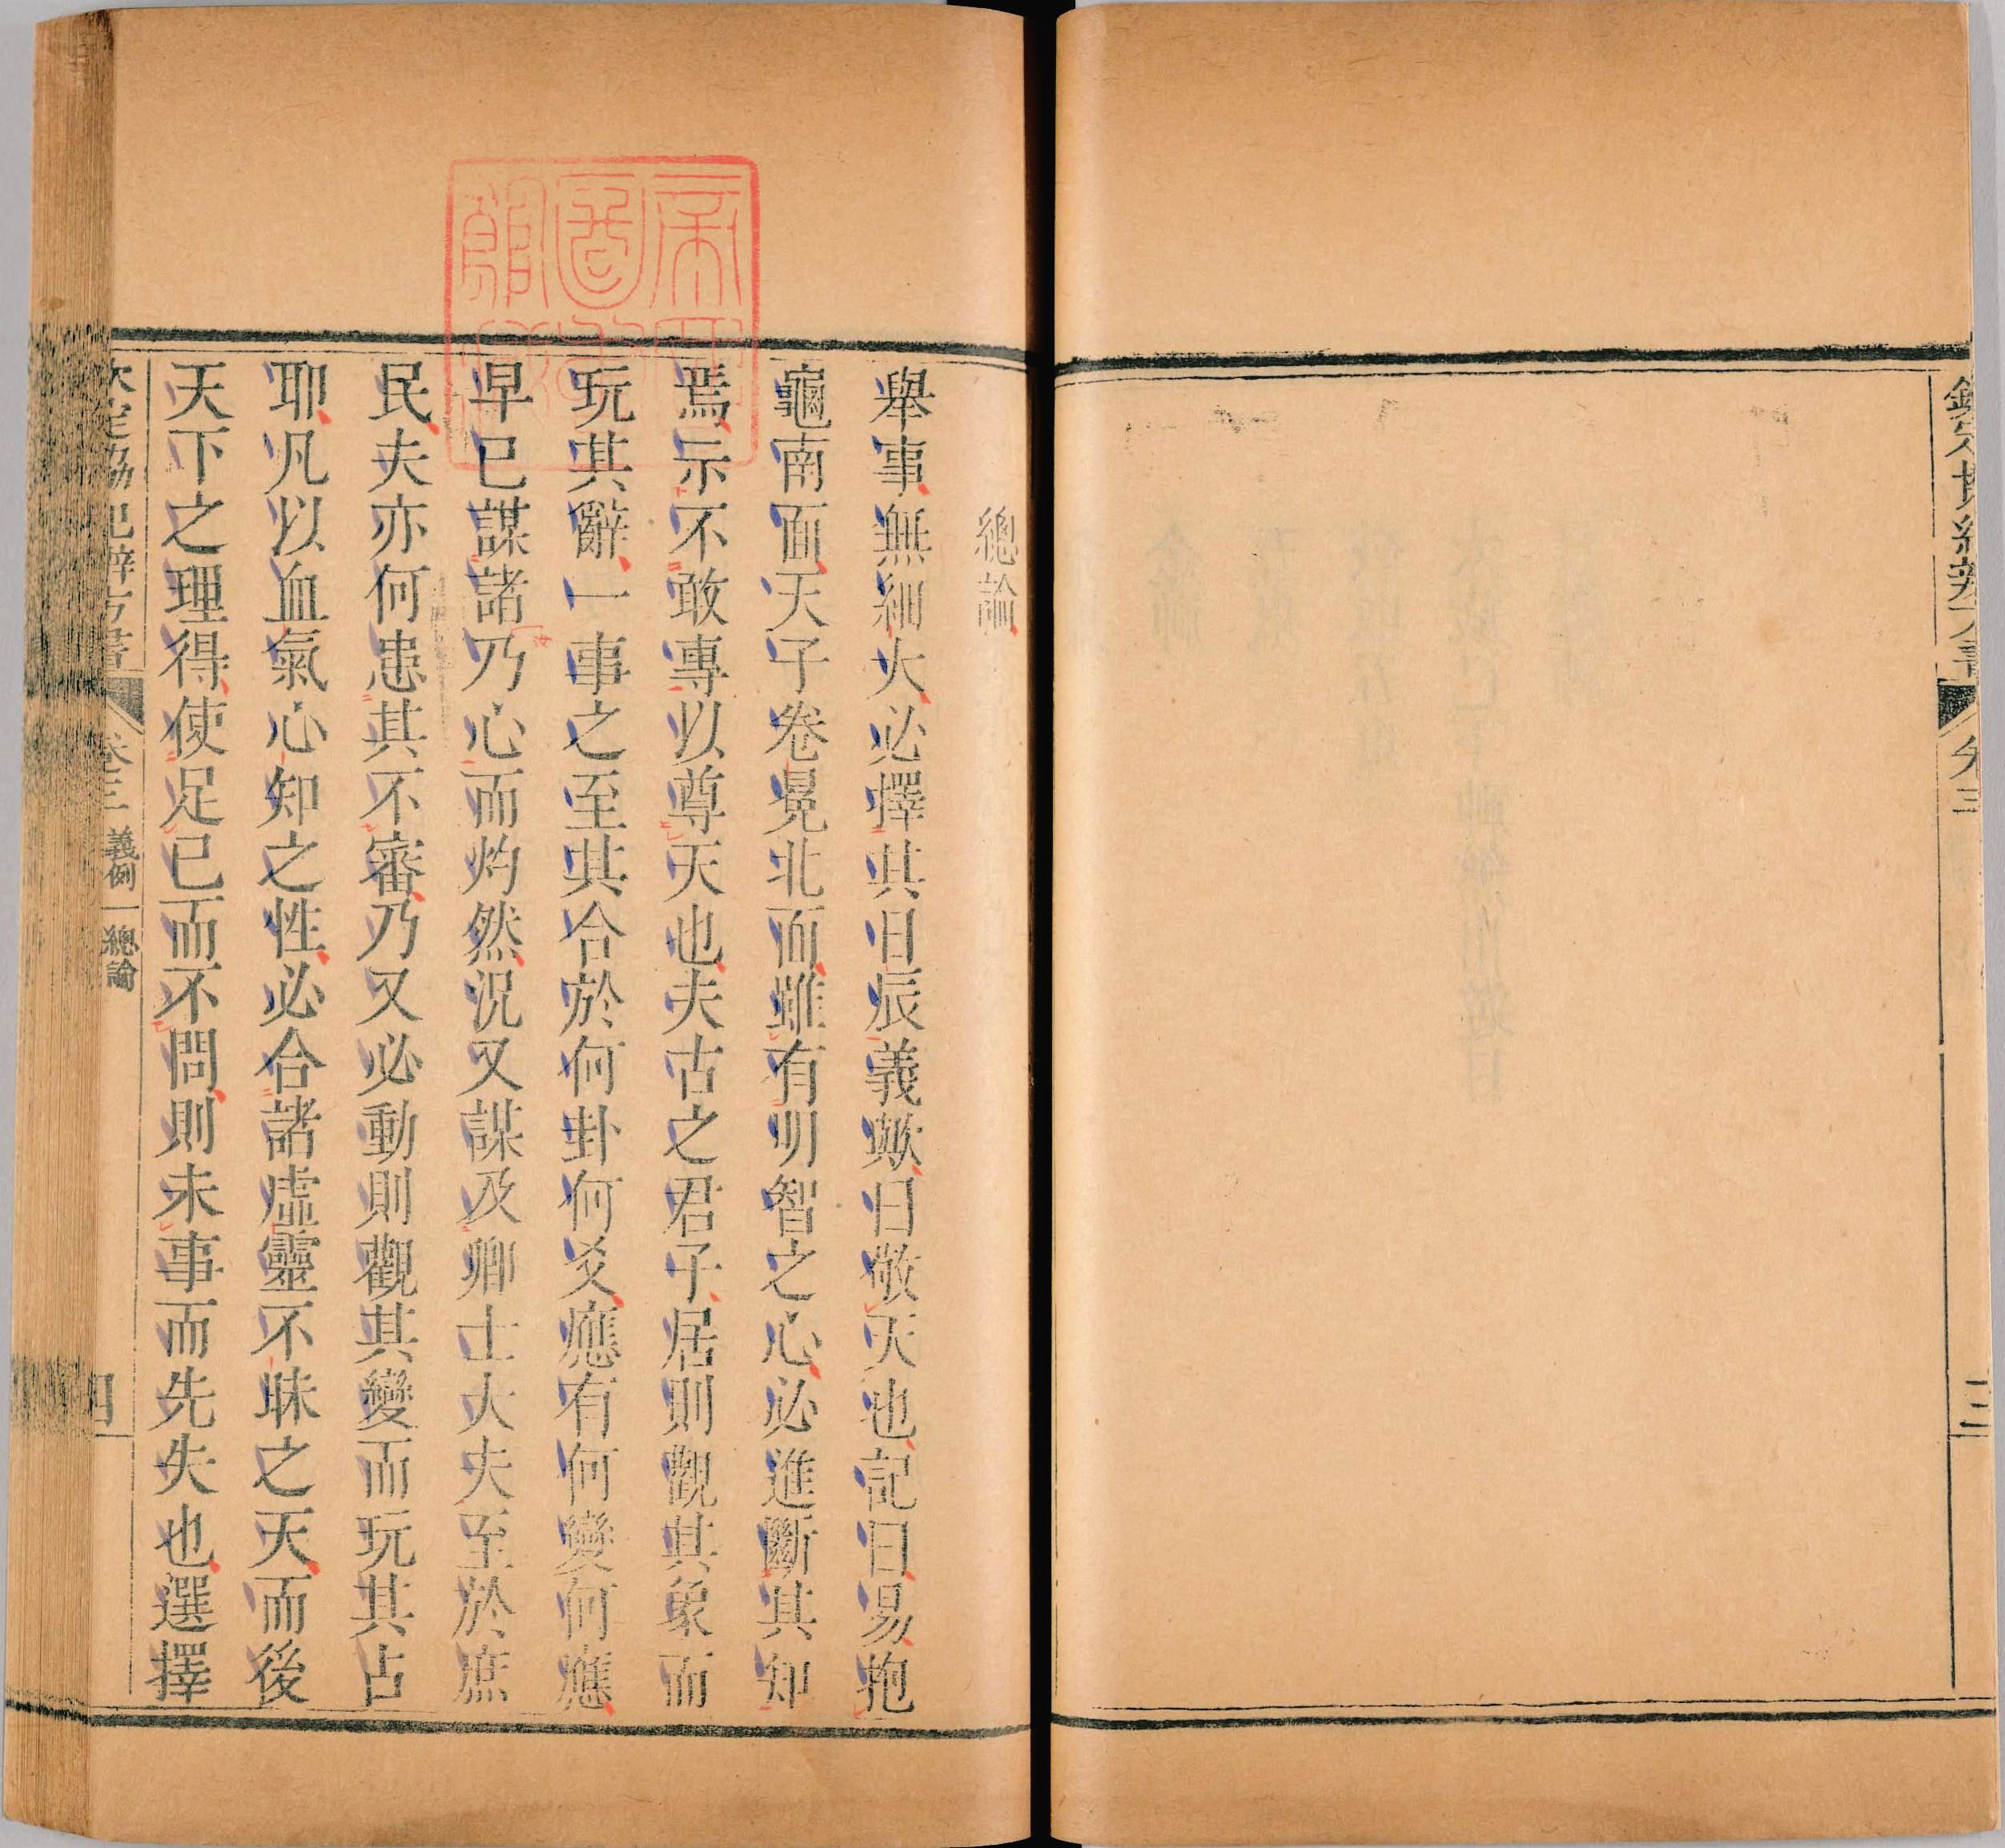 總論
舉事無細大必擇其日辰義歟曰敬天也記曰易抱
龜南面天子卷冕北面雖有明智之心必進斷其知
焉示不敢專以尊天也夫古之君子居則觀其象而
玩其辭一事之至其合於何卦何爻應有何變何應
早已謀諸乃心而灼然況又謀及卿士大夫至於庶
民夫亦何患其不審乃又必動則觀其變而玩其占
耶凡以血氣心知之性必合諸虛靈不昧之天而後
天下之理得使足已而不問則未事而先失也選擇
欽定協紀辨方書 卷三 義例一 總論 四